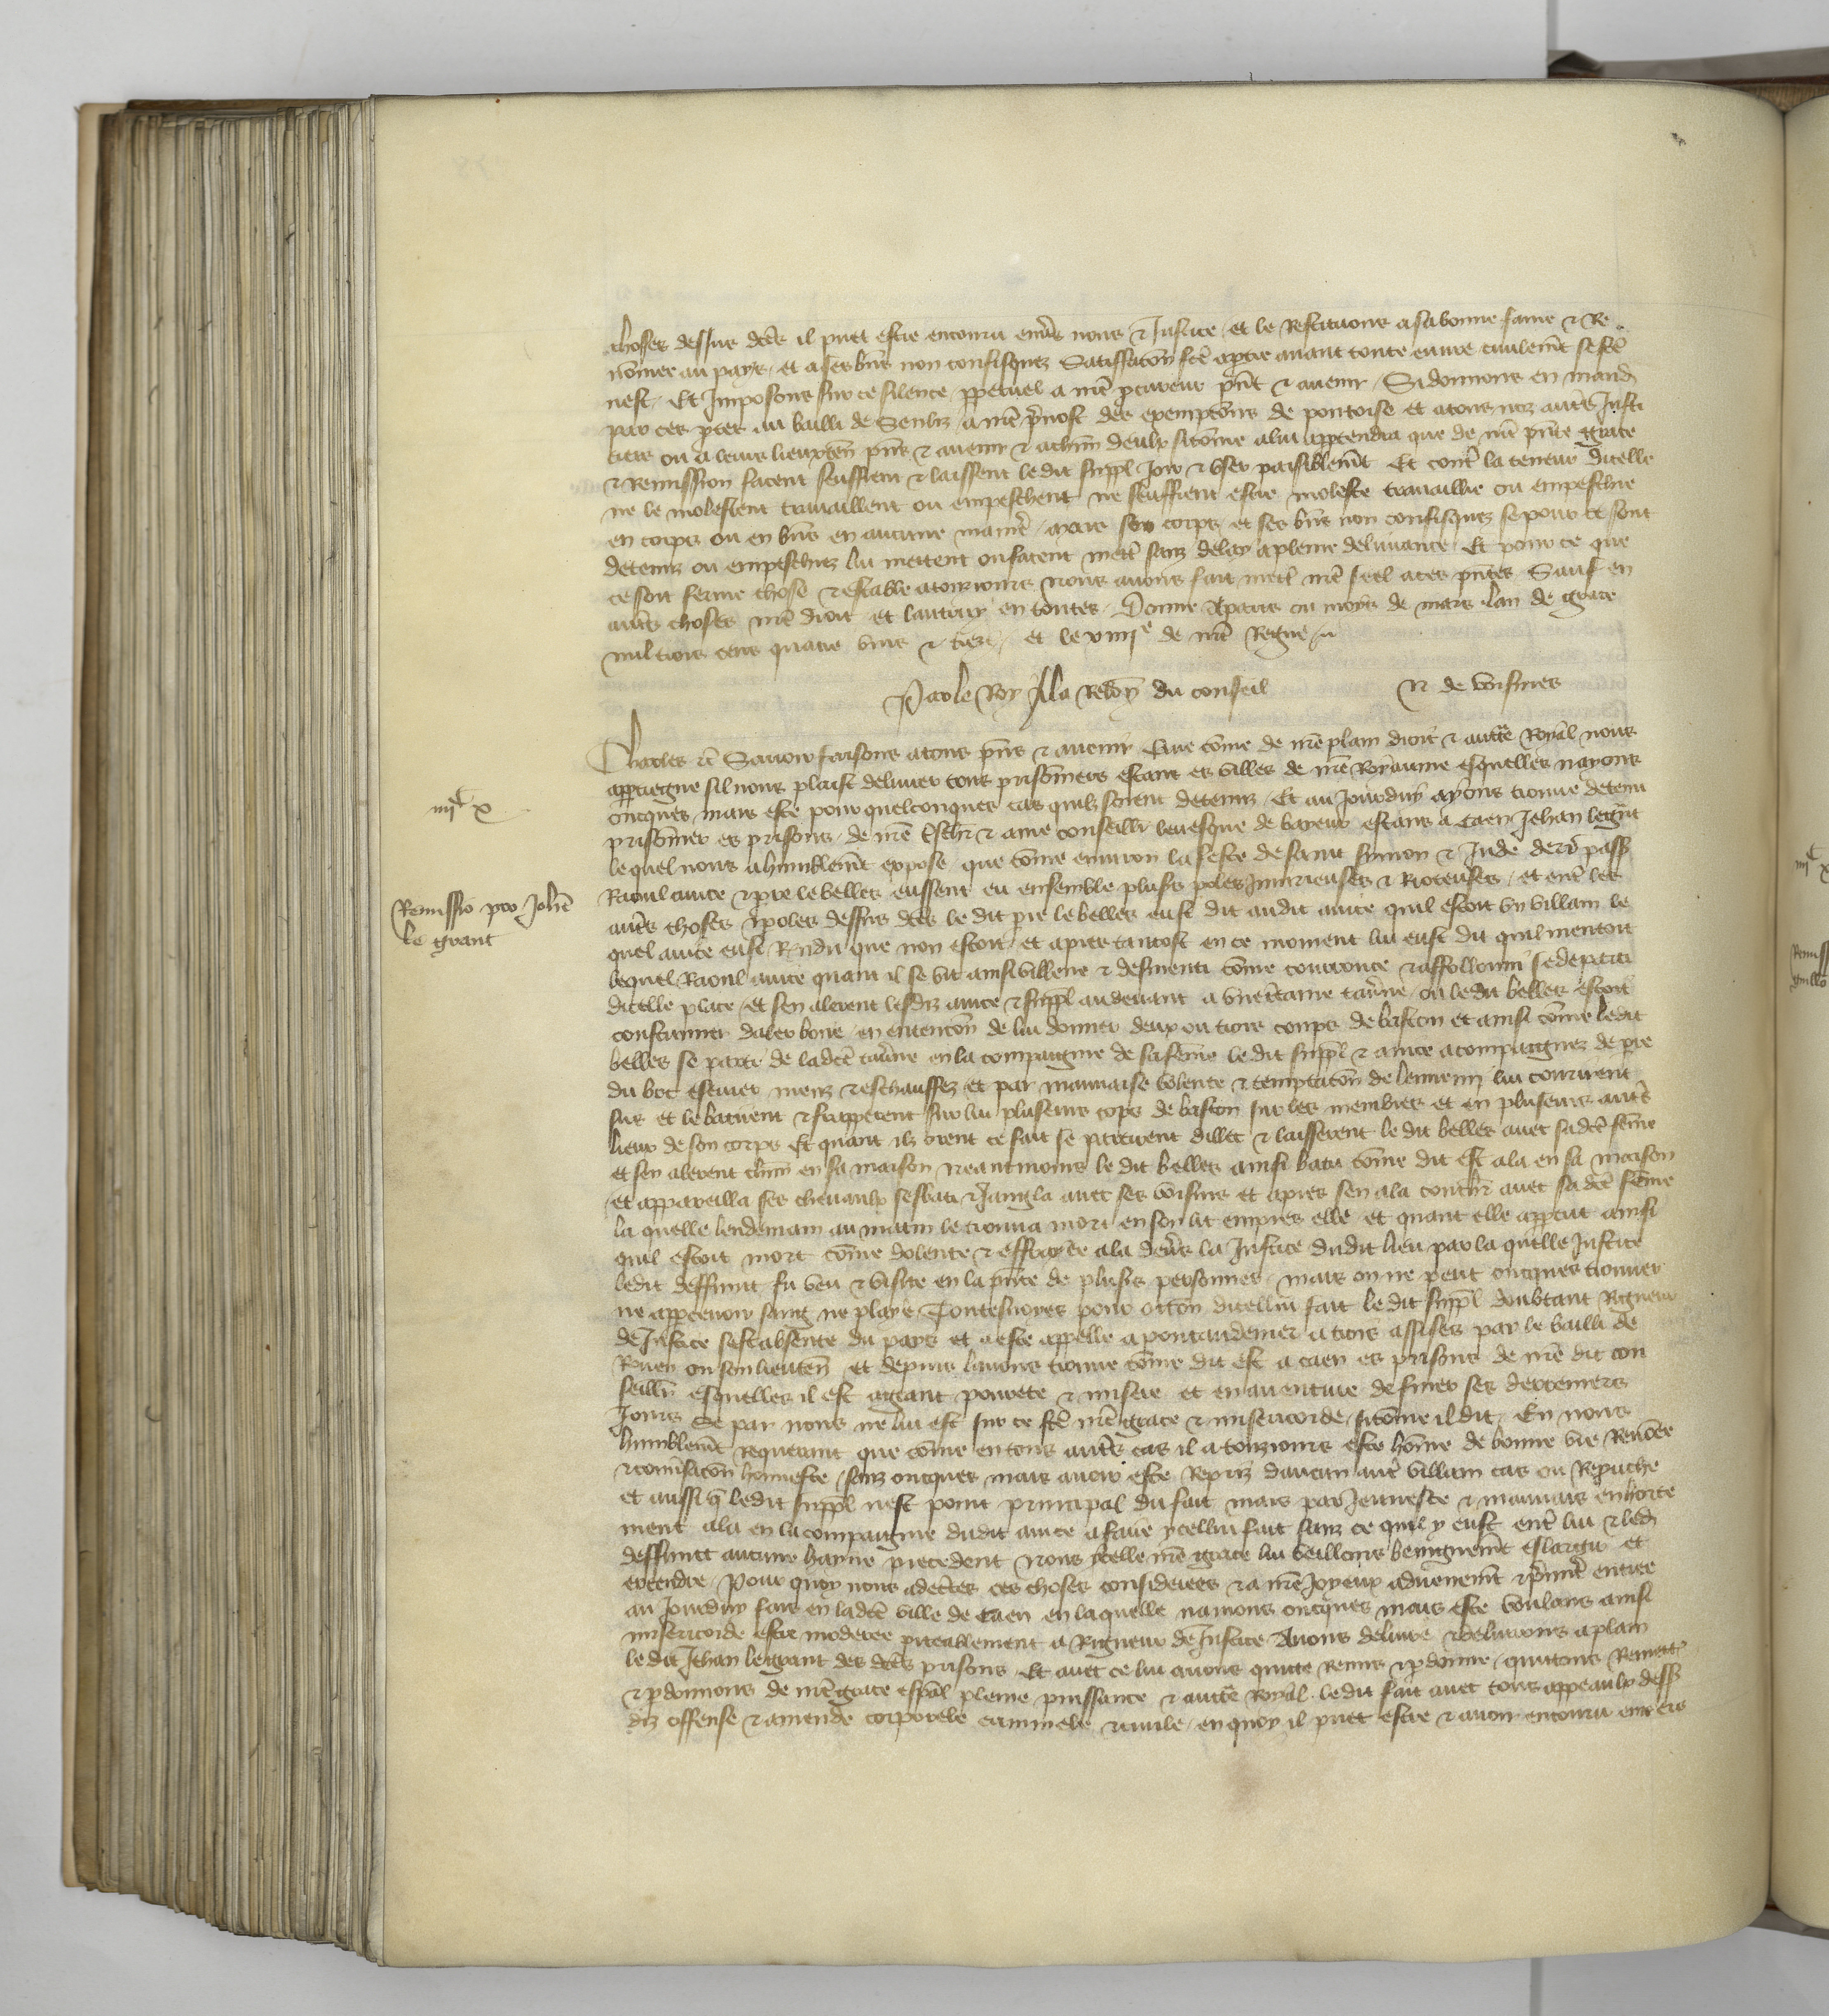 choses dessus dictes il puet estre encouru envers nous & Justice et le Restituons a sa bonne fame & Re
nommee au pays et a ses biens non confisquez Satisfaction fcte a partie avant toute euvre civilement se fcte
nest Et Imposons sur ce silence ppetuel a nre procureur pnt & avenir Si donnons en mand
par ces ptes au bailli de Senliz a nre prevost des exempcions de pontoise et a tous noz autres Justi
ciers ou a leurs lieuxten pns & avenir & a chun deulx si comme a lui appartendra que de nre pnte grace
& Remission facent seuffrent & laissent le dit suppl Joir & user paisiblemt Et contre la teneur dicelle
ne le molestent travaillent ou empeschent ne seuffrent estre moleste travaillie ou empeschie
en corps ou en biens en aucune maniere mais son corps et ses biens non confisquez se pour ce sont
detenuz ou empeschiez lui mettent ou facent mettre sanz delay a pleine delivrance Et pour ce que
ce soit ferme chose & estable a touzjours nous avons fait mettre nre seel a ces pntes Sauf en
autres choses nre droit et lautruy en toutes Donne A paris ou moys de mars lan de grace
mil trois cens quatre vins & treze et le xiiije de nre Regne
Par le Roy A la Relon du conseil N de voisines
Charles etc Savoir faisons a tous pns & avenir Que comme de nre plain droit & auctte Royal nous
appartiegne sil nous plaist delivrer tous prisonniers estans es villes de nre Royaume esquelles nayons
oncques mais este pour quelconques cas quilz soient detenuz Et au Jourduy ayons trouve detenu
iiijC x
prisonnier es prisons de nre & ame conseillr levesque de bayeux estans a Caen Jehan legrant
lequel nous a humblement expose que comme environ la feste de saint simon & Jude derr pass
Raoul auice & pre le belles eussent eu ensemble plusrs poles Injurieuses & Rioteuses et entre les
Remissio pro Johe
le grant
autres choses & poles dessus dctes le dit pre le belles eust dit audit auice quil estoit un villain le
quel auice eust Rendu que non estoit et apres tantost en ce moment lui eust dit quil mentoit
lequel Raoul auice quant il se vit ainsi villene & desmenti comme courrouce & se departi
dicelle place et sen alerent lesdiz auice & suppl audevant a une certaine taverne ou le dit belles estoit
daler boire en entencon de lui donner deux ou trois coups de baston et ainsi comme ledit
belles se parti de ladcte taverne en la compaignie de sa femme le dit suppl & auice acompaignez de pre
du boc escuier meuz & eschauffez et par mauvaise volente & temptacion de lennemi lui coururent
sus et le batirent & frapperent sur lui pluseurs cops de baston sur les membres et en pluseurs autres
lieux de son corps Et quant ilz orent ce fait se partirent dillec & laisserent le dit belles avec sadcte femme
et sen alerent chun en sa maison neantmoins le dit belles ainsi batu comme dit est ala en sa maison
et appareilla ses chevaulx sesbati & Jangla avec ses voisins et apres sen ala couchr avec sadcte femme
la quelle lendemain au matin le trouva mort en son lit empres elle et quant elle appceut ainsi
quil estoit mort comme dolente & effraiee ala devers la Justice dudit lieu par la quelle Justice
ledit deffunct fu veu & visite en la pnce de plusrs personnes mais on ne peut oncques trouver
ne appercevoir sang ne playe Toutesvoyes pour occon dicellui fait le dit suppl doubtant Rigueur
de Justice sest absente du pays et a este appelle a pontaudemer a trois assises par le bailli de
Rouen ou son lieuten et depuis lavons trouve comme dit est a caen es prisons de nre dit con
seillr esquelles il est a grant povrete & misere et en aventure de finer ses derreniers
Jours Se par nous ne lui est sur ce fcte nre grace & misericorde si comme il dit En nous
humblemt requerant que comme en tous autres cas il a touzjours este homme de bonne vie Renomee
& conversacion honneste sanz oncques mais avoir este Repris daucun autre villain cas ou Reprouche
et aussi q ledit suppl nest point principal du fait mais par Jeunesce & mauvais enhorte
ment ala en la compaignie dudit auice a faire ycellui fait sanz ce quil y eust entre lui & led
deffunct aucune hayne precedent nous ycelle nre grace lui veillons benignemt eslargir et
extendre Pour quoy nous adcertes ces choses considerees & a nre Joyeux advenemt & premiere entree
au Jourduy fais en ladcte ville de Caen en laquelle navions oncques mais este voulans ainsi
misericorde estre moderee a Rigueur de Justice Avons delivre & delivrons a plain
le dit Jehan legrant des dctes prisons Et avec ce lui avons quicte Remis & pdonne quictons Remett
& pdonnons de nre grace espal pleine puissance & auctte Royal le dit fait avec tous appeaulx dess
diz offense & amende corporele criminele & civile en quoy il puet estre & avoir encouru envers